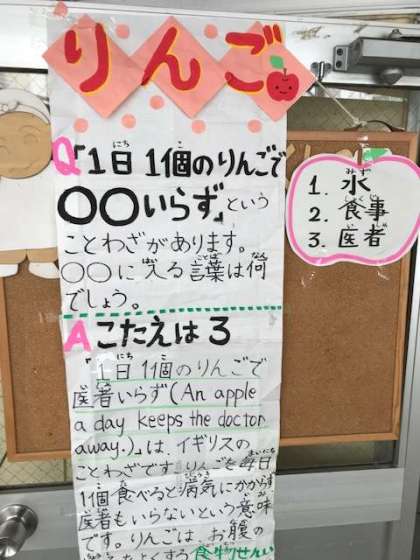 りんご
Q「1日1個のりんごで
〇〇いらず」という
ことわざがあります。
〇〇に入る言葉は何
でしょう。
1. 水
2. 食事
3. 医者
Aこたえは3
「1日1個のりんごで
医者いらず(An apple
a day keeps the doctor
away.)」は、イギリスの
ことわざです。りんごを毎日
1個食べると病気にかからず
医者もいらないという意味
です。りんごは、お腹の
食物せんい